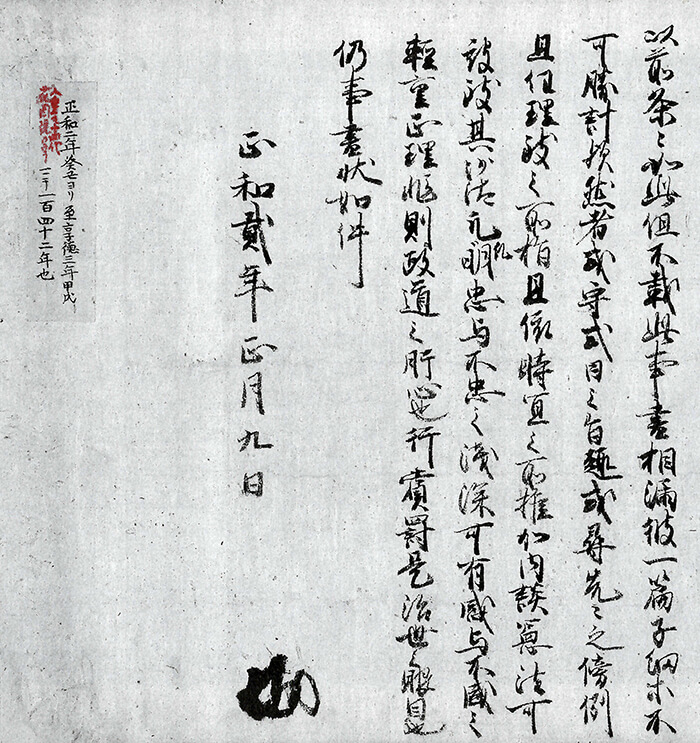 以前条々如此但不載此事書相漏彼一篇子細等不
可勝計歟然者或守式目之旨趣或尋先々之傍例
且任理致之所柏且依時宜之所推加内談憲法可
致其沙汰凡糺明忠与不忠之浅深可有感与不感之
軽重正理惟則政道之肝心也行賞罰是治世之眼目也
仍事書状如件
正和貳年正月九日
正和二年癸丑ヨリ至享徳三年甲戌
一百四十二年也